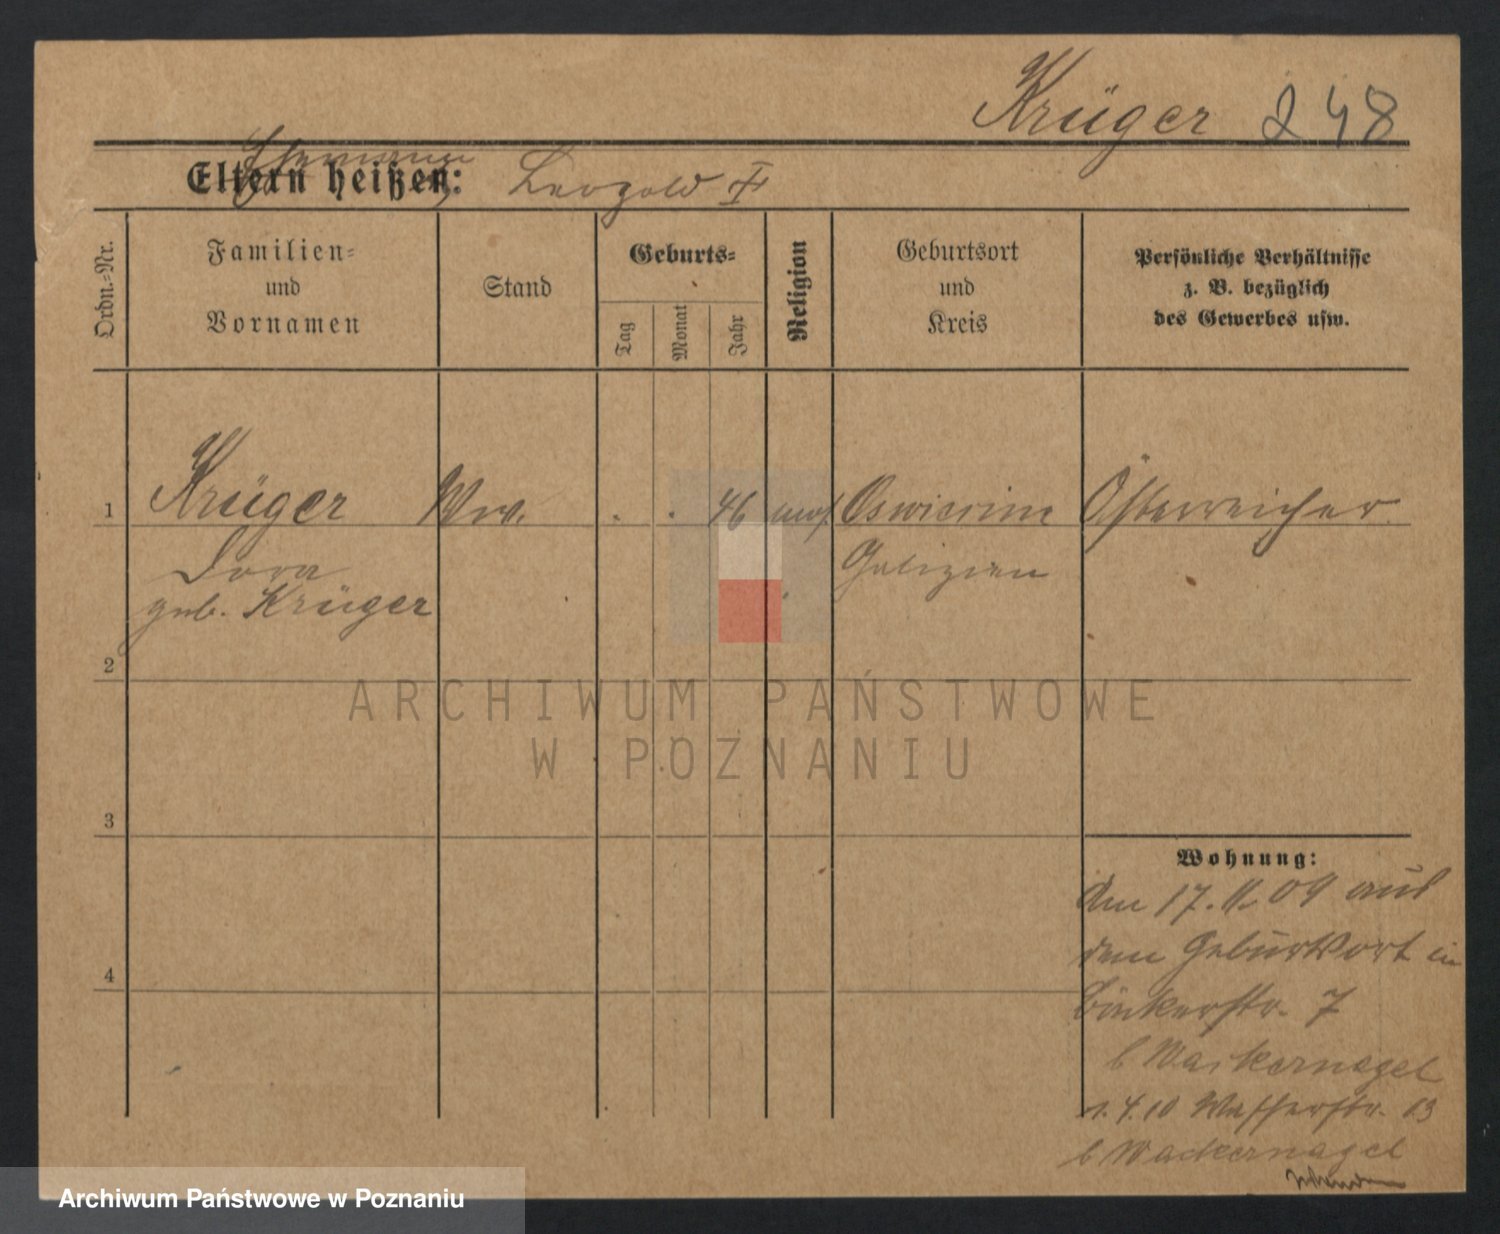 Krüger 248
Ehemann
Eltern heißen: Leopold
Ordn.-Nr.
Familien-
und
Vornamen
Stand
Geburts-
Tag
Monat
Jahr
Religion
Geburtsort
und
Kreis
Persönliche Verhältnisse
z. B. bezüglich
des Gewerbes usw.
1 Krüger Ww. . . 46 mos. Oswiecim Österreicher
Dora Galizien
geb. Krüger
2
3
4
Wohnung:
Am 17. 11. 09 aus
dem Geburtsort in
Bäckerstr. 7
b Wackernagel
1. 4. 10 Wasserstr. 13
b Wackernagel
ARCHIWUM PAŃSTWOWE
W POZNANIU
Archiwum Państwowe w Poznaniu